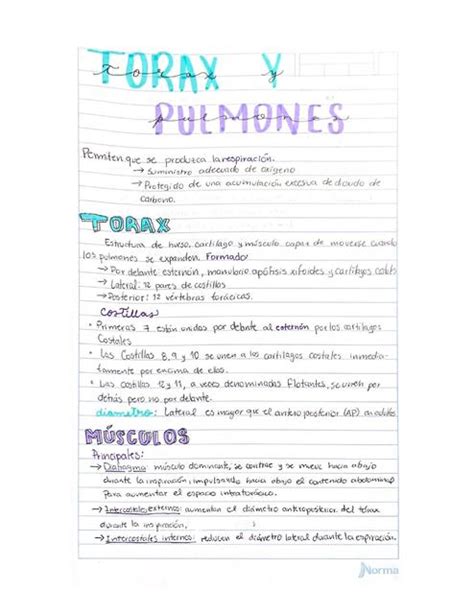 TORAX Y
torax y
PULMONES
pulmones
Permiten que se produzca la respiración.
→ Suministro adecuado de oxigeno
→ Protegido de una acumulación excesiva de dioxido de
carbono.
TORAX
Estructura de hueso, cartilago y músculo capaz de moverse cuando
los pulmones se expanden. Formador
→ Por delante esternón, manubrio, apófisis xifoides y cartílagos costales
→ Lateral: 12 pares de costillas
→ Posterior: 12 vértebras torácicas.
Costillas
• Primeras 7 están unidas por delante al esternón por los cartílagos
Costales
• Las Costillas 8, 9 y 10 se unen a los cartílagos costales inmedia-
tamente por encima de ellos.
• Las costillas 12 y 11, a veces denominadas Flotantes, se unen por
detrás pero no por delante.
diametros: Lateral es mayor que el antero posterior (AP) en adultos
MÚSCULOS
Principales:
→ Diafragma: músculo dominante, se contrae y se mueve hacia abajo
durante la inspiración, impulsando hacia abajo el contenido abdominal
Para aumentar el espacio intratorácico.
→ Intercostales externos: aumentan el diámetro anteroposterior del tórax
durante la inspiración,
→ Intercostales internos: reducen el diámetro lateral durante la espiración.
Norma